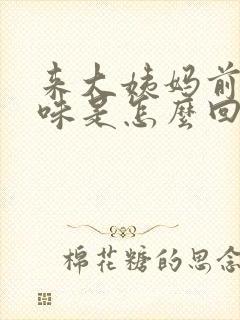 来大姨妈前
味是怎麼回
棉花糖的思念